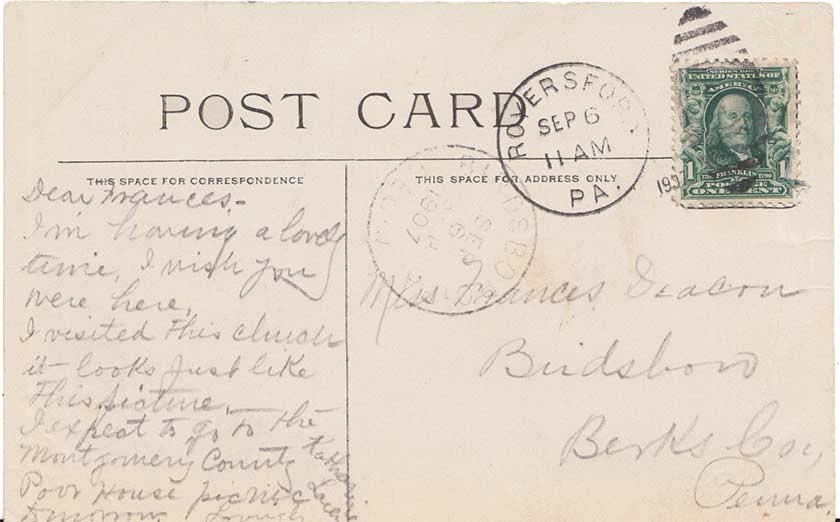 POST CARD
THIS SPACE FOR CORRESPONDENCE
THIS SPACE FOR ADDRESS ONLY
ROYERSFORD
SEP 6
11 AM
PA.
190
SERIES 1902
UNITED STATES OF
AMERICA
1 FRANKLIN 1790 1
POSTAGE
ONE CENT
BIRDSBORO
SEP
6
1907
Dear Frances-
I'm having a lovely
time, I wish you
were here,
I visited This church
it looks just like
This picture.
I expect to go to the
Montgomery County
Poor House picnic
tomorrow. Lovingly
Katharine
Miss Frances Deacon
Birdsboro
Berks Co.,
Penna